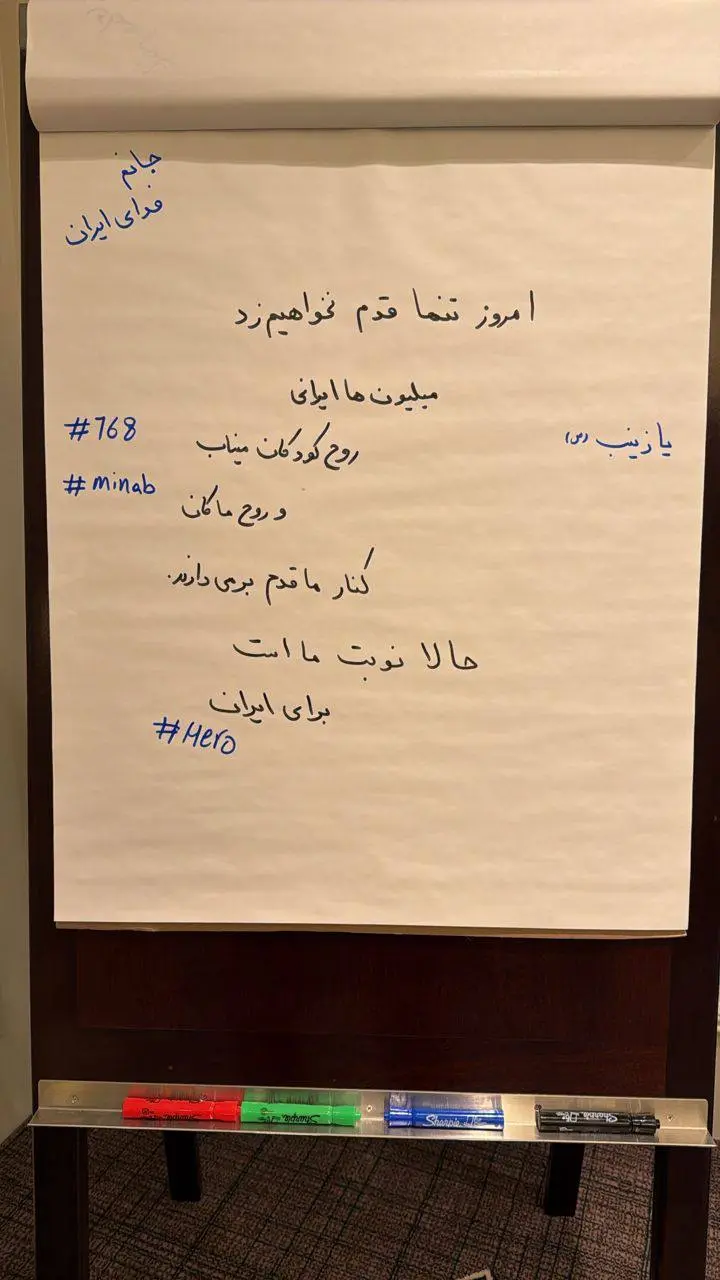 جانم
فدای ایران
امروز تنها قدم نخواهیم زد
میلیون ها ایرانی
روح کودکان میناب
#768
#minab
یا زینب (س)
و روح ماکان
کنار ما قدم برمی دارند.
حالا نوبت ما است
برای ایران
#Hero
Sharpie
Sharpie
Sharpie
Sharpie